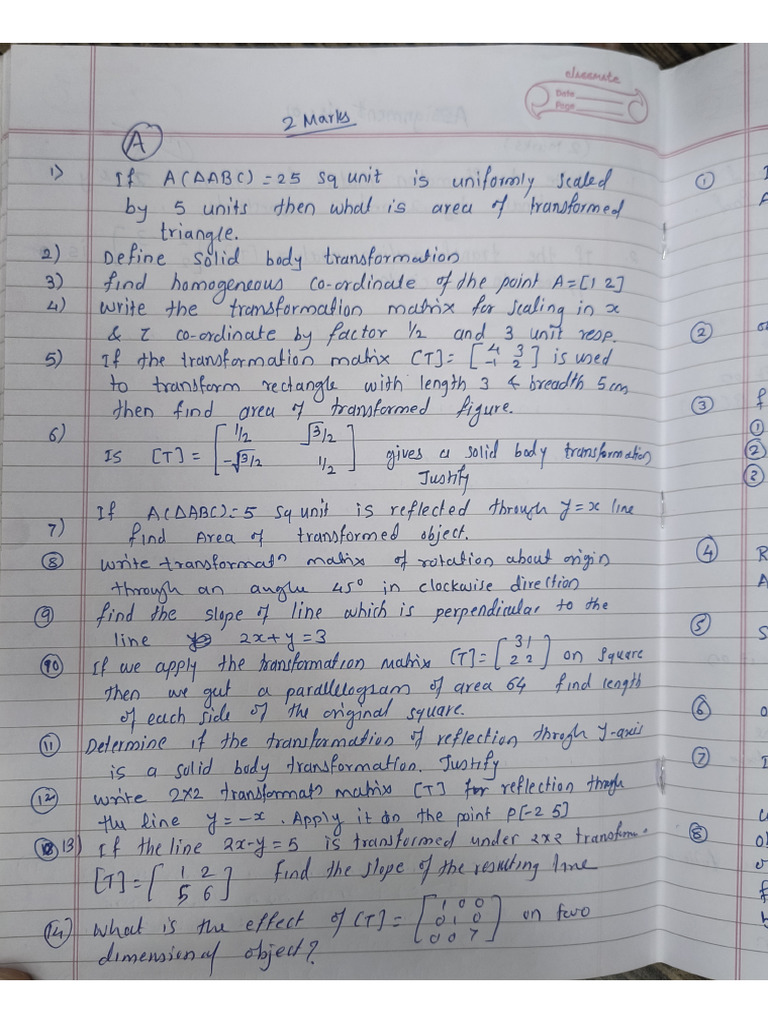 classmate
Date
Page
2 Marks
A
1) If A(ΔABC) = 25 sq unit is uniformly scaled
by 5 units then what is area of transformed
triangle.
2) Define solid body transformation
3) find homogeneous co-ordinate of the point A=[1 2]
4) write the transformation matrix for scaling in x
& z co-ordinate by factor 1/2 and 3 unit resp.
5) If the transformation matrix [T]= [4 3
-1 2] is used
to transform rectangle with length 3 & breadth 5cm
then find area of transformed figure.
6) Is [T] = [1/2 √3/2
-√3/2 1/2] gives a solid body transformation
Justify
7) If A(ΔABC)=5 sq unit is reflected through y=x line
find Area of transformed object.
8 write transformatn matrix of rotation about origin
through an angle 45° in clockwise direction
9 find the slope of line which is perpendicular to the
line 2x+y=3
10 If we apply the transformation matrix [T]=[3 1
2 2] on square
then we gut a parallelogram of area 64 find length
of each side of the original square.
11 Determine if the transformation of reflection throgh Y-axis
is a solid body transformation. Justify
12 write 2x2 transformatn matrix [T] for reflection throgh
the line y=-x. Apply it on the point P[-2 5]
13) If the line 2x-y=5 is transformed under 2x2 transform.
[T]=[1 2
5 6] Find the slope of the resulting line
14) What is the effect of [T]= [1 0 0
0 1 0
0 0 7] on two
dimensional object?
1
2
3
1
2
3
4
5
6
7
8